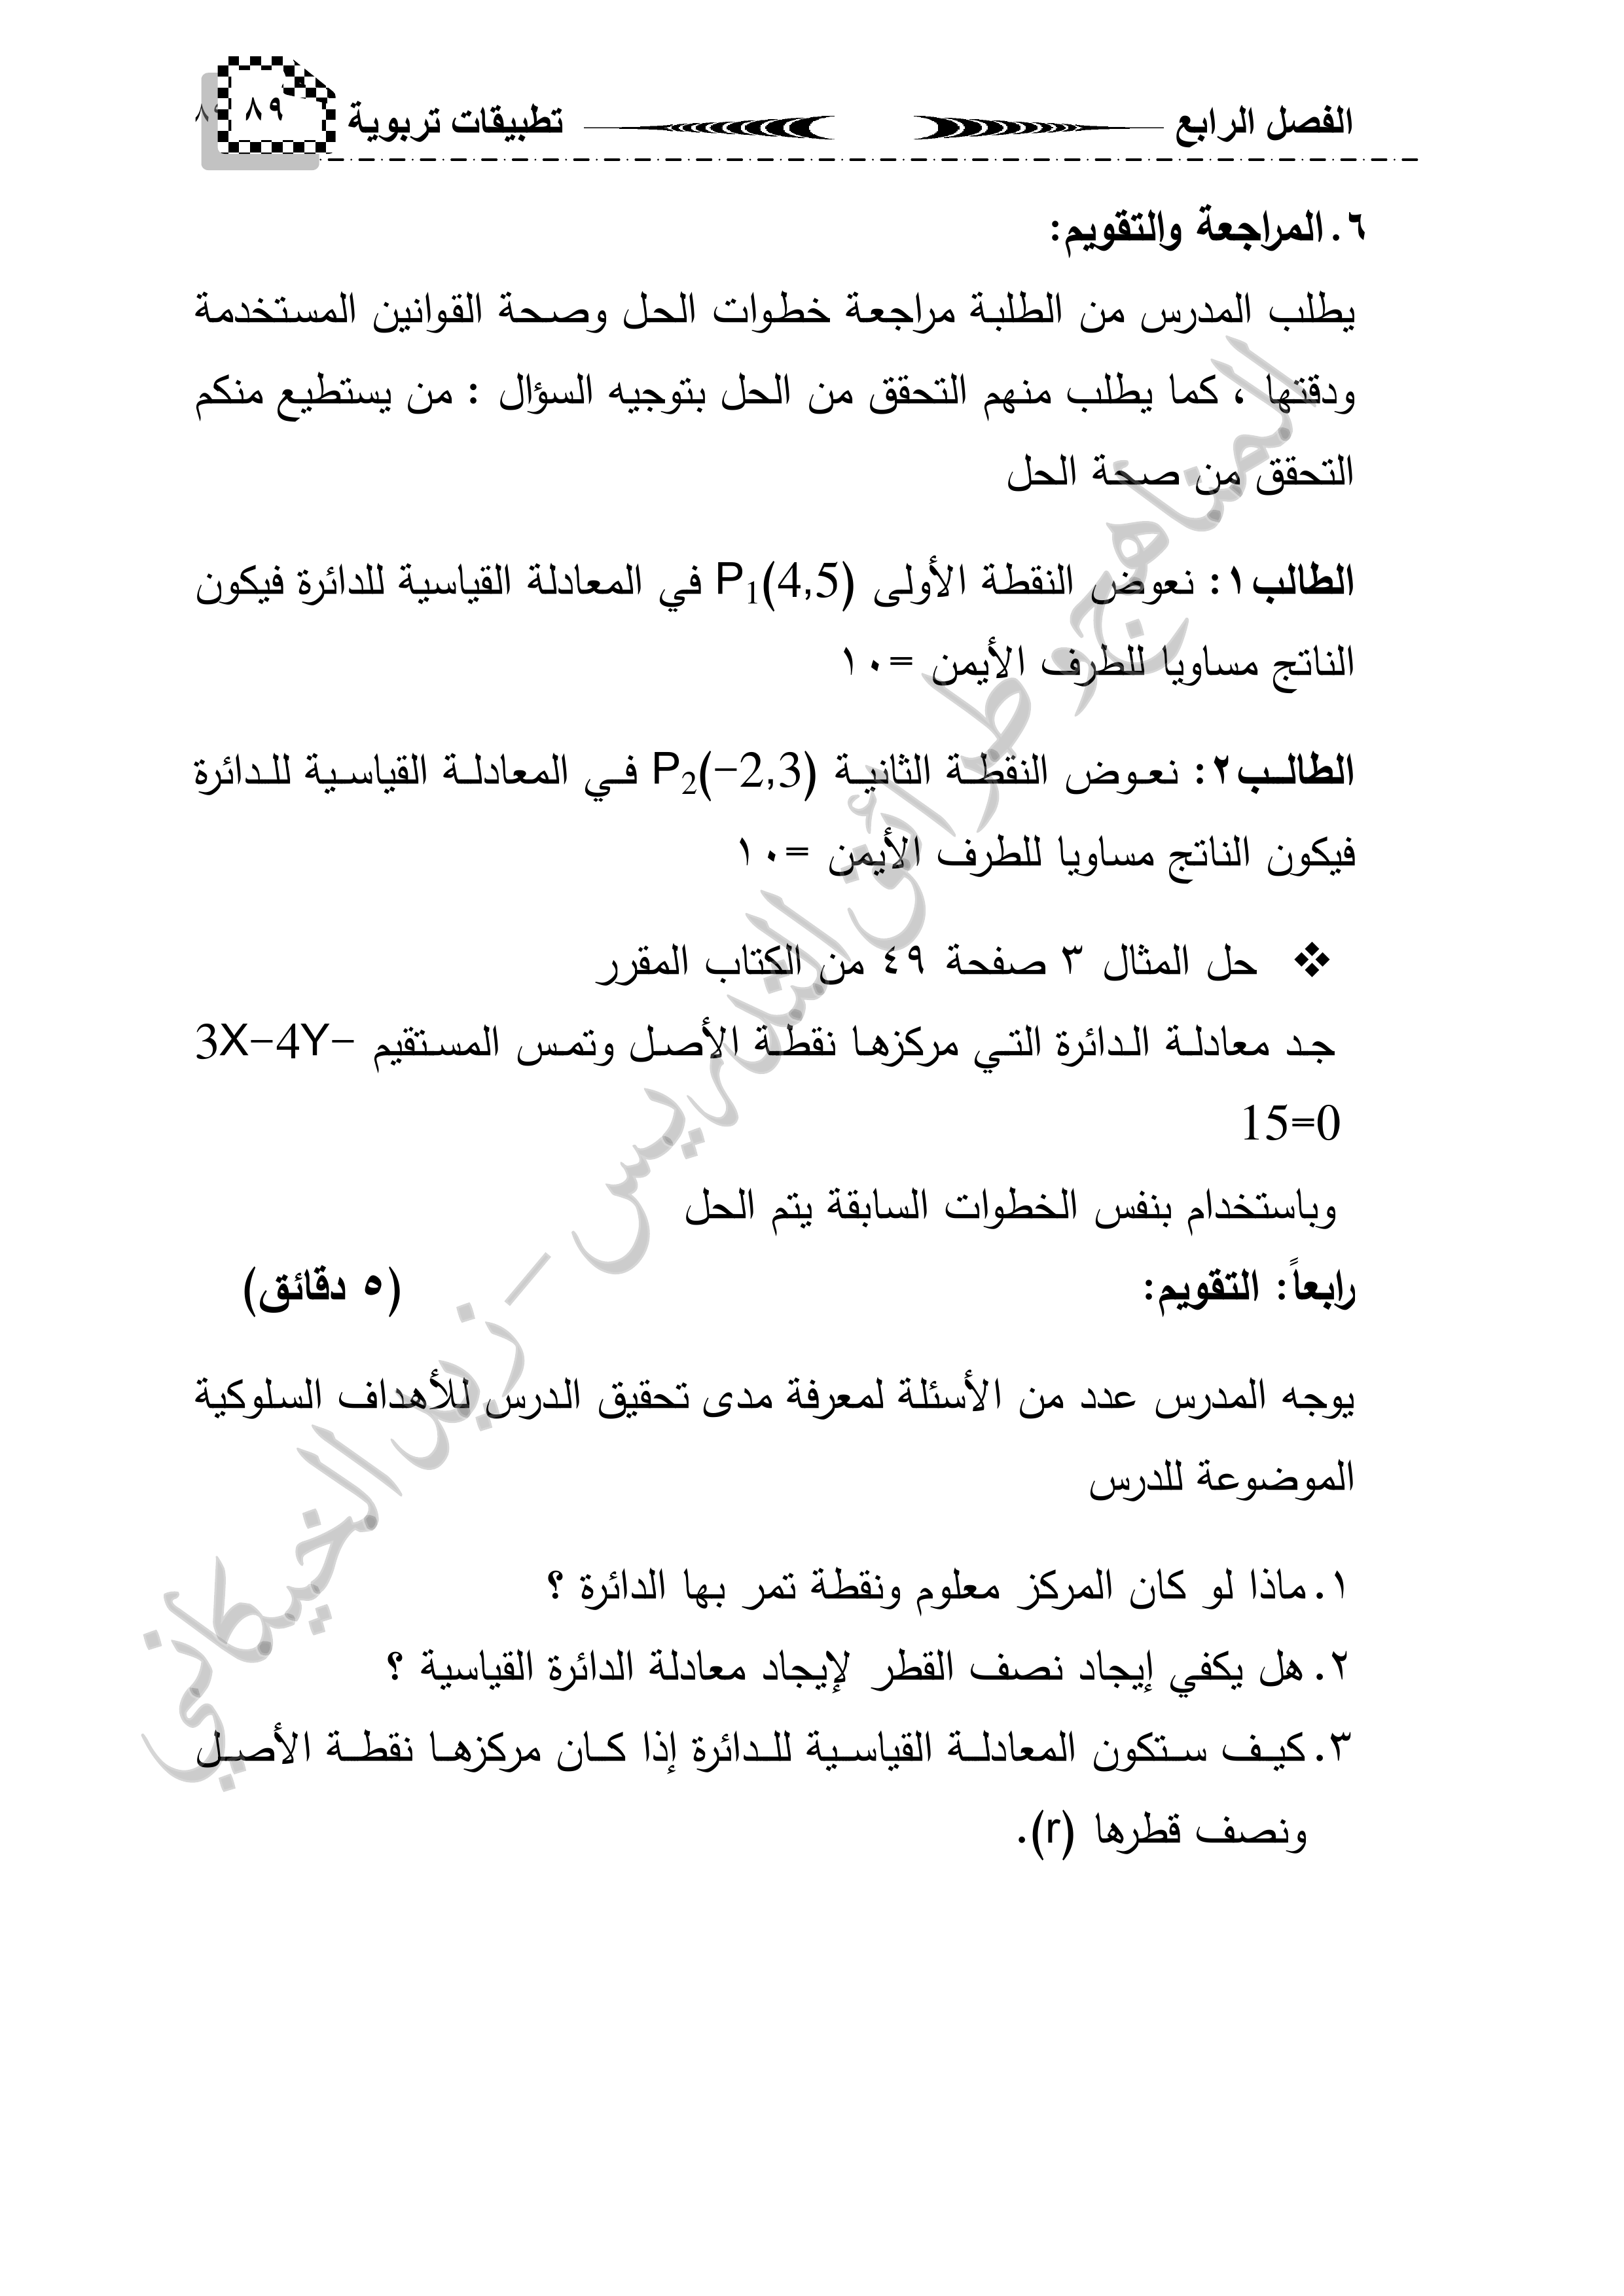 الفصل الرابع تطبيقات تربوية ٨٩
٦. المراجعة والتقويم:
يطلب المدرس من الطلبة مراجعة خطوات الحل وصحة القوانين المستخدمة
ودقتها ، كما يطلب منهم التحقق من الحل بتوجيه السؤال : من يستطيع منكم
التحقق من صحة الحل
الطالب١: نعوض النقطة الأولى P1(4,5) في المعادلة القياسية للدائرة فيكون
الناتج مساويا للطرف الأيمن =١٠
الطالب٢: نعوض النقطة الثانية P2(-2,3) في المعادلة القياسية للدائرة
فيكون الناتج مساويا للطرف الأيمن =١٠
❖ حل المثال ٣ صفحة ٤٩ من الكتاب المقرر
جد معادلة الدائرة التي مركزها نقطة الأصل وتمس المستقيم 3X-4Y-
15=0
وباستخدام بنفس الخطوات السابقة يتم الحل
رابعاً: التقويم: (٥ دقائق)
يوجه المدرس عدد من الأسئلة لمعرفة مدى تحقيق الدرس للأهداف السلوكية
الموضوعة للدرس
١. ماذا لو كان المركز معلوم ونقطة تمر بها الدائرة ؟
٢. هل يكفي إيجاد نصف القطر لإيجاد معادلة الدائرة القياسية ؟
٣. كيف ستكون المعادلة القياسية للدائرة إذا كان مركزها نقطة الأصل
ونصف قطرها (r).
المناهج وطرائق التدريس - زيد الخيكاني